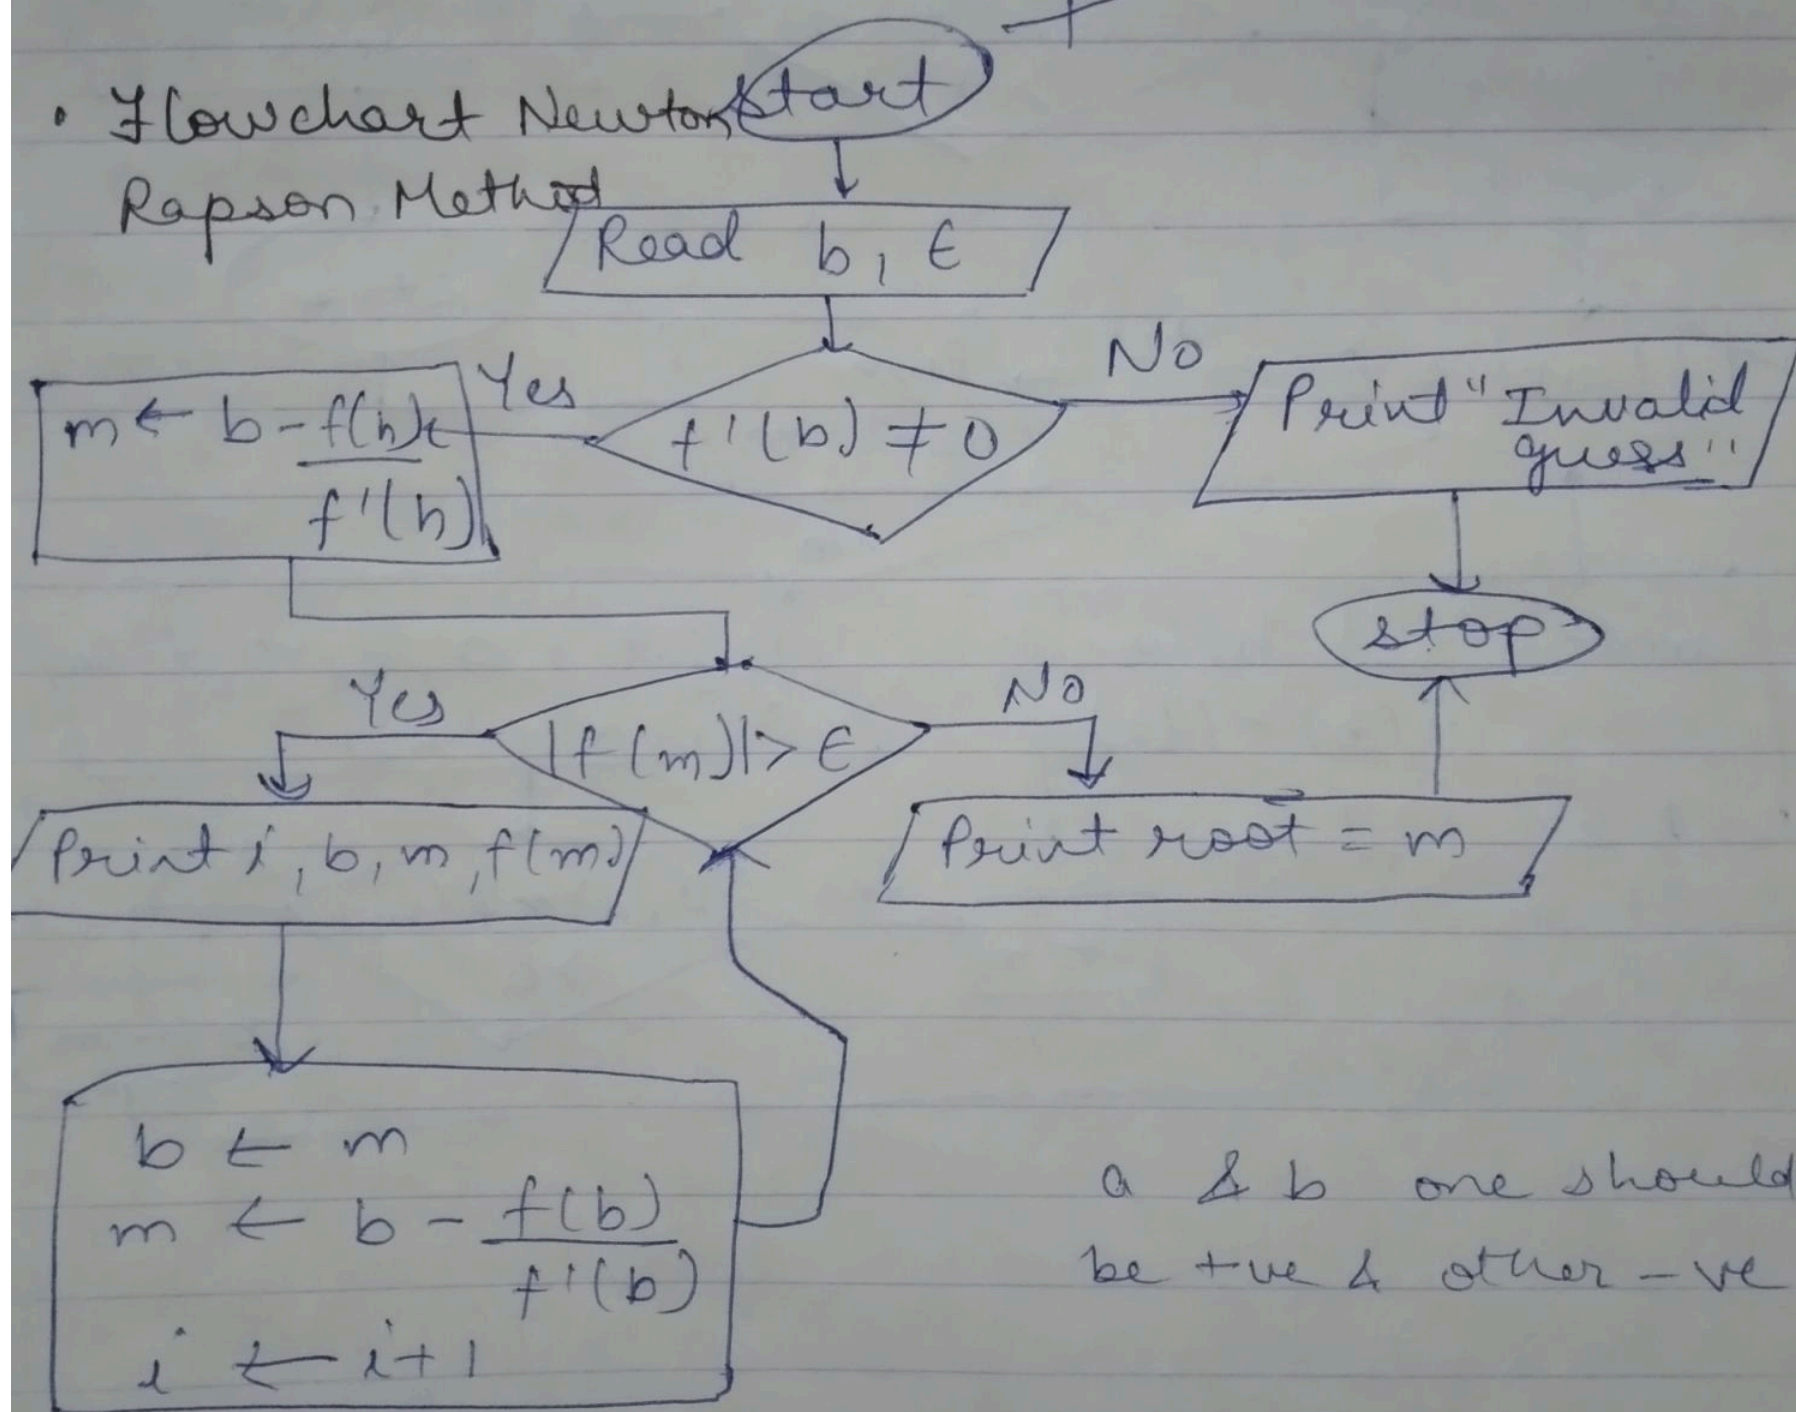 • Flowchart Newton
Rapson Method
Start
Read b, ε
f'(b) ≠ 0
Yes
No
m ← b - f(h)
f'(h)
Print "Invalid
guess"
stop
|f(m)| > ε
Yes
No
Print i, b, m, f(m)
Print root = m
b ← m
m ← b - f(b)
f'(b)
i ← i+1
a & b one should
be +ve & other -ve